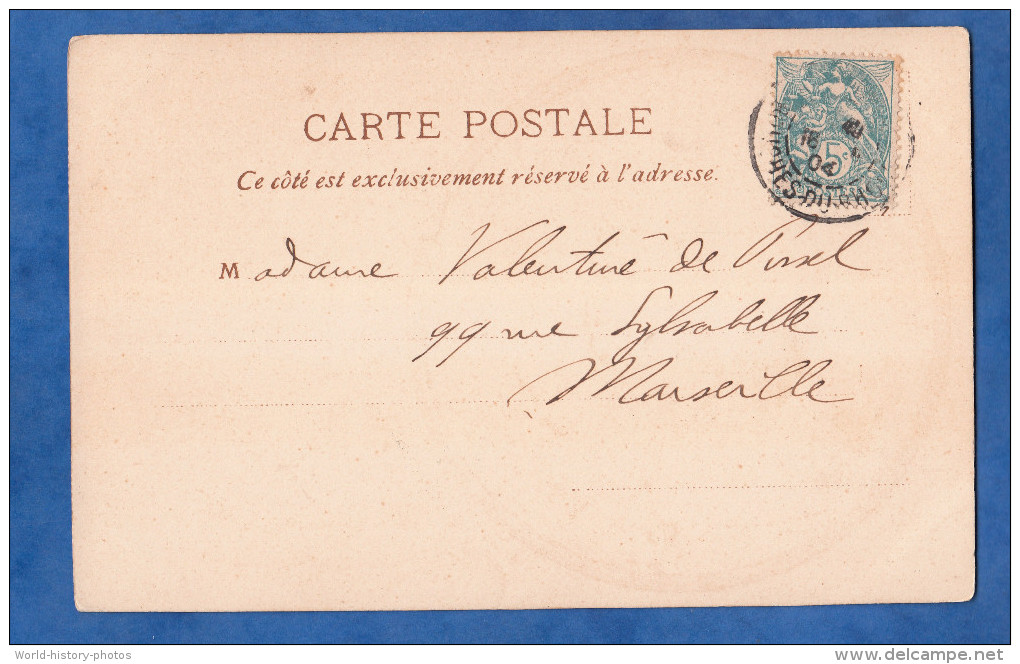 CARTE POSTALE
Ce côté est exclusivement réservé à l'adresse.
Madame Valentine de
99 rue Sylvabelle
Marseille
5c
16
04
BOUCHES-DU-RHONE
World-history-photos
www.delcampe.net